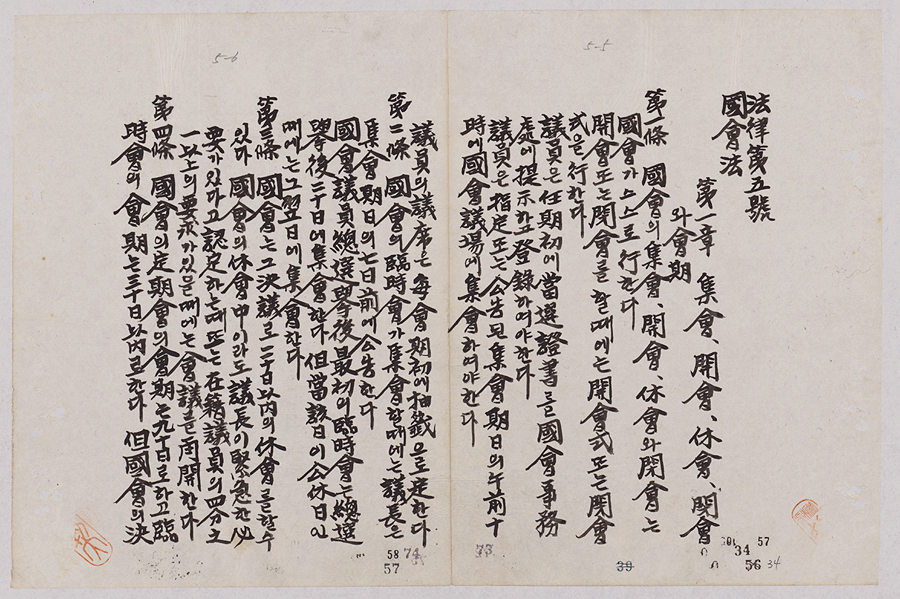 5-5
法律第五號
國會法
第一章 集會、開會、休會、閉會
와 會期
第一條 國會의 集會、開會、休會와 閉會는
國會가 스스로 行한다
開會또는 閉會를 할때에는 開會式또는 閉會
式을 行한다
議員은 任期初에 當選證書를 國會事務
處에 提示하고 登錄하여야한다
議員은 指定또는 公告된 集會期日의 午前十
時에 國會議場에 集會하여야한다
57
34
56 34
39
73
5-6
議員의 議席은 每會期初에 抽籤으로 定한다
第二條 國會의 臨時會가 集會할때에는 議長은
集會期日의 七日前에 公告한다
國會議員總選擧後 最初의 臨時會는 總選
擧後二十日에 集會한다 但 當該日이 公休日인
때에는 그 翌日에 集會한다
第三條 國會는 그 決議로 二十日以內의 休會를 할수
있다 國會의 休會中이라도 議長이 緊急한 必
要가 있다고 認定하는때 또는 在籍議員의 四分之
一以上의 要求가 있을때에는 會議를 再開한다
第四條 國會의 定期會의 會期는 九十日로하고 臨
時會의 會期는 三十日以內로한다 但 國會의 決
58 74
57